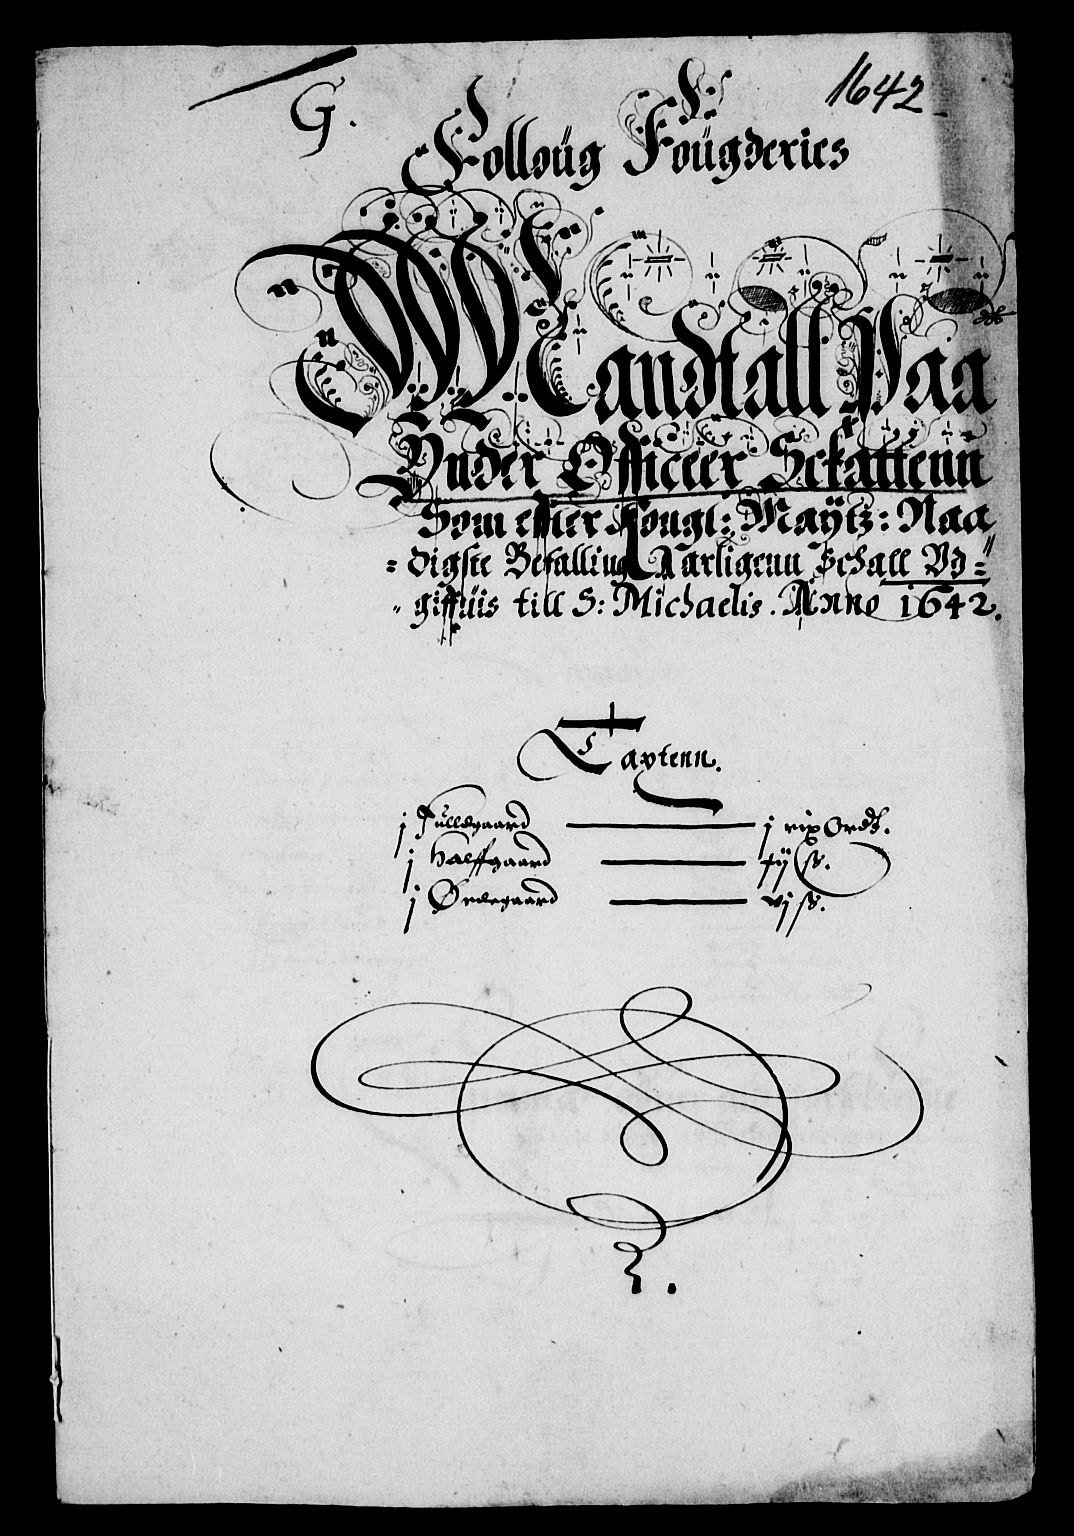 1642
G.
Folloüg Foügderies
Mandtall Paa
Vnder Officeer Sckattenn
Som effter Kongl: Maÿtz: Naa
= digste Befalling Aarligenn Schall Vd=
" giffuis till S: Michaelis. Anno 1642.
Taxtenn.
j Fulldgaard — j rix Ordt.
j Halffgaard — ss.
j Ødegaard — vj ss.